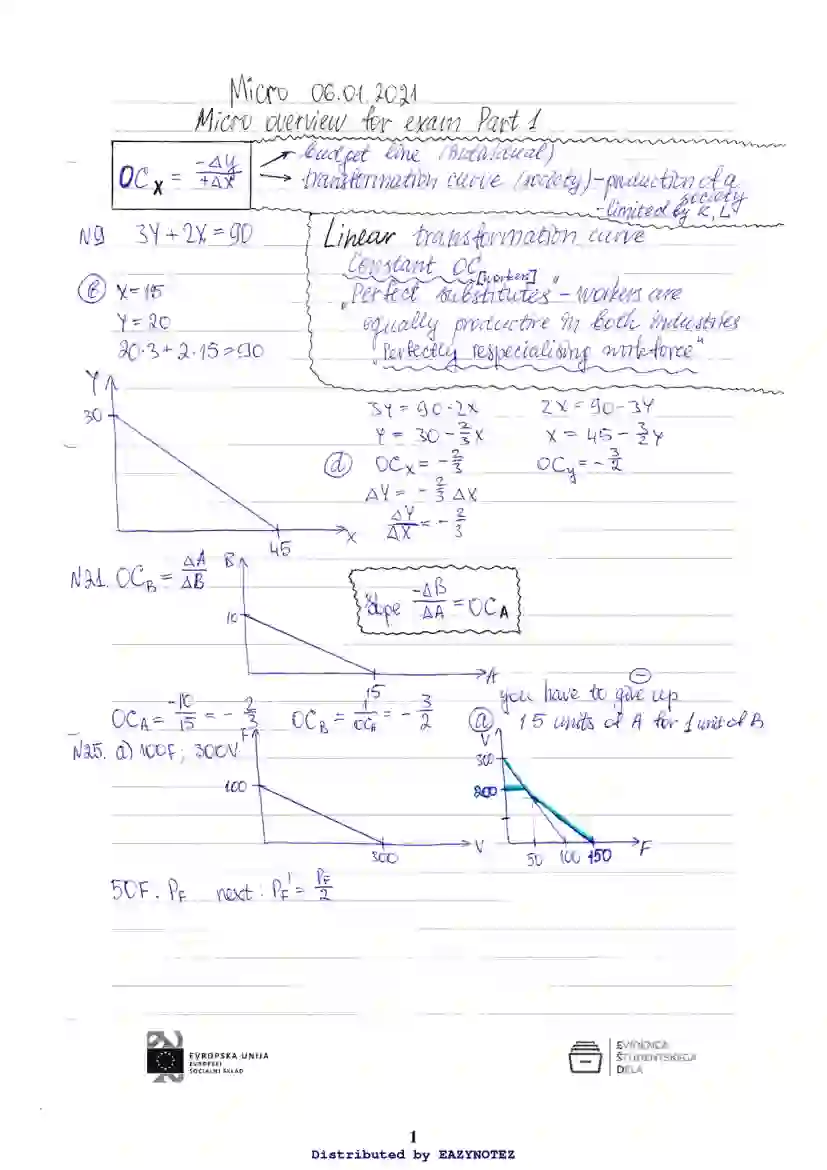 Micro 06.01.2021
Micro overview for exam Part 1
OCx = -ΔY/+ΔX → budget line (individual)
→ transformation curve (society) - production of a society
- limited by K, L
N9 3Y + 2X = 90
Linear transformation curve
Constant OC
[workers]
"Perfect substitutes" - workers are
equally productive in both industries
"Perfectly respecialising workforce"
X = 15
Y = 20
20·3 + 2·15 = 90
Y
30
45
X
3Y = 90 - 2X 2X = 90 - 3Y
Y = 30 - 2/3 X X = 45 - 3/2 Y
ⓓ OCx = - 2/3 OCy = - 3/2
ΔY = - 2/3 ΔX
ΔY/ΔX = - 2/3
N21. OC_B = ΔA/ΔB
B
10
15
A
Slope -ΔB/ΔA = OC_A
OC_A = -10/15 = - 2/3 OC_B = 1/OC_A = - 3/2
⊖
you have to give up
1.5 units of A for 1 unit of B
N25. a) 100F; 300V
F
100
300
V
ⓐ
V
300
200
50 100 150
F
50F · P_F next: P_F' = P_F/2
EVROPSKA UNIJA
EVROPSKI
SOCIALNI SKLAD
EVIDENCA
ŠTUDENTSKEGA
DELA
1
Distributed by EAZYNOTEZ